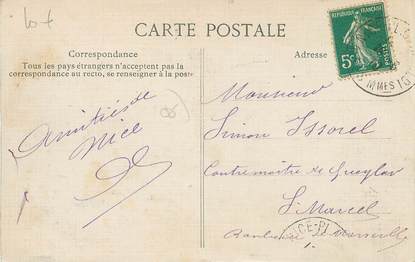 CARTE POSTALE
Correspondance
Tous les pays étrangers n'acceptent pas la correspondance
au recto, se renseigner à la poste
Adresse
REPUBLIQUE FRANÇAISE
5c
POSTES
Amitiés de
Nice
Monsieur
Simon Issorel
Contremaitre de
St Marcel
Banlieue de Marseille
NICE-PL